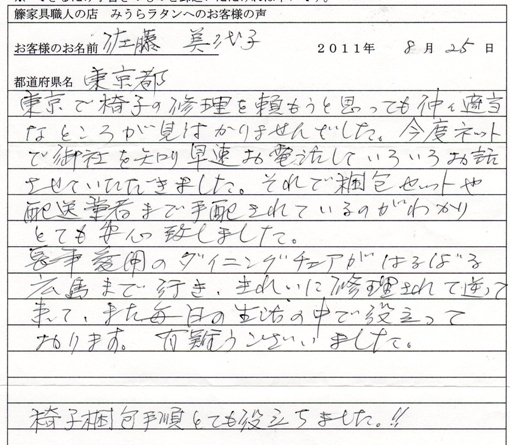 籐家具職人の店 みうらラタンへのお客様の声
お客様のお名前 佐藤 美代子 2011年 8月 25日
都道府県名 東京都
東京で椅子の修理を頼もうと思っても仲々適当
なところが見つかりませんでした。今度ネット
で御社を知り早速お電話していろいろお話
させていただきました。それで梱包セットや
配送業者まで手配されているのがわかり
とても安心致しました。
愛用のダイニングチェアがはるばる
広島まで行き、きれいに修理されて送って
来て、また毎日の生活の中で役立って
おります。有難うございました。
椅子梱包手順とても役立ちました。!!